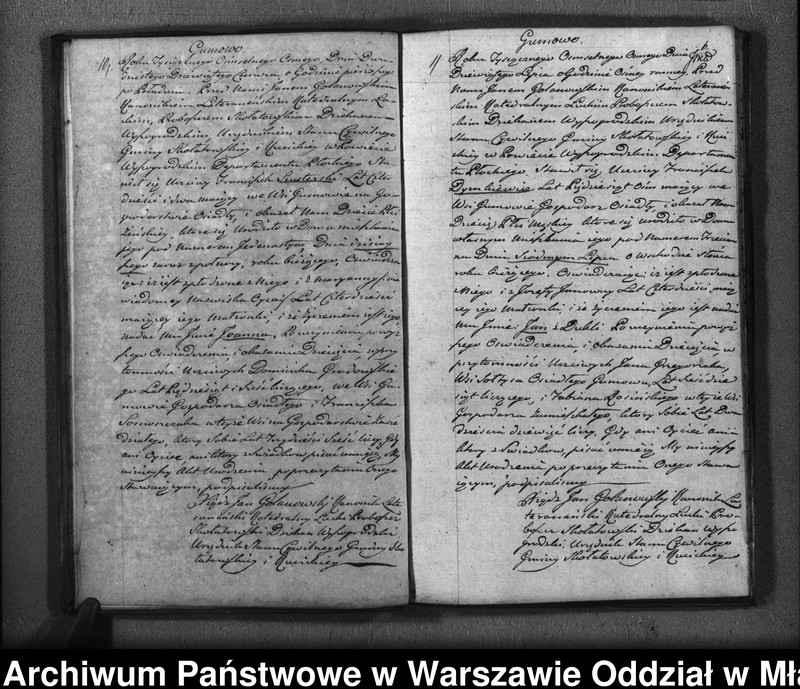 Gumowo
10,
Roku Tysięcznego Osmsetnego Osmego, Dnia Dwu
dziestego Dziewiątego Czerwca, o Godzinie pierwszey
po Południu. Przed Nami Janem Golanowskim
Kanonikiem Laterańskim Katedralnym
Proboszczem Skołatowskim Dziekanem
Wyszogrodzkim, Urzędnikiem Stanu Cywilnego
Gminy Skołatowskiey i w Powiecie
Wyszogrodzkim Departamencie Płockiego Sta
wił się Uczciwy Franciszek Lat Czter
dzieści i dwa maiący we Wsi Gumowie na Go
podarstwie Osiadły, i okazał Nam Dziecię Płci
Żeńskiey, które się urodziło w Domu mieszkania
jego pod Numerem Jedenastym, Dnia dzisiey
szego zaraz z północy, roku bieżącego, Oświadcza
iąc iż jest spłodzone z Niego i z Maryanny Nie
wiadomey Nazwiska Oyca Lat Czterdzieści
maiącey iego Małżonki i że życzeniem iest jego
nadać Mu Imie Joanna, Po uczynieniu powyż
szego Oświadczenia i okazaniu Dziecięcia, w przy
tomności Uczciwych Dominika Grodowskie
go Lat Pięćdziesiąt i Sześć liczącego, we Wsi Gu
mowie Gospodarza Osiadłego i Franciszka
Sosnoszczaka w teyże Wsi na Gospodarstwie
działego, który Sobie Lat Trzydzieści Sześć liczy, Gdy
ani Oyciec ani który z Swiadków pisać umieią, My
ninieyszy Akt Urodzenia po przeczytaniu Onego
Stawaiącym, podpisaliśmy
Xiądz Jan Golanowski Kanonik Late
rański Katedralny Proboszcz
Skołatowski Dziekan Wyszogrodzki
Urzędnik Stanu Cywilnego Gminy Sko
łatowskiey i
Gumowo.
11
Roku Tysięcznego Osmsetnego Osmego Dnia
Dziewiątego Lipca o Godzinie Osmey ranney, Przed
Nami Janem Golanowskim Kanonikiem Laterań
skim Katedralnym Proboszczem Skołatow
skim Dziekanem Wyszogrodzkim Urzędnikiem
Stanu Cywilnego Gminy Skołatowskiey i
w Powiecie Wyszogrodzkim, Departamen
tu Płockiego. Stawił się Uczciwy Franciszek
Lat Pięćdziesiąt Osm maiący we
Wsi Gumowie Gospodarz Osiadły i okazał Nam
Dziecię Płci Męskiey które się urodziło w Domu
własnym Mieszkania iego pod Numerem Trzecim
na Dniu Siodmym Lipca o wschodzie Słońca
roku bieżącego. Oświadczaiąc iż iest spłodzone
z Niego i z Jozefy Lat Czterdzieści maią
cey iego Małżonki i że życzeniem iego iest nadać
Mu Imie Jan Po uczynieniu powyż
szego Oświadczenia, i okazaniu Dziecięcia w
przytomności Uczciwych Jana Grzegorzaka,
Wsi Sołtysa Osiadłego Gumowa, Lat Sześćdzie
siąt liczącego, i Fabiana Rosińskiego w teyże Wsi
Gospodarza zamieszkałego, który Sobie Lat Dwa
dzieścia dziewięć liczy, Gdy ani Oyciec ani
który z Swiadków, pisać umieią, My ninieyszy
Akt Urodzenia po przeczytaniu Onego Stawa
iącym, podpisaliśmy
Xiądz Jan Golanowski Kanonik La
terański Katedralny Pro
boszcz Skołatowski Dziekan Wyszo
grodzki Urzędnik Stanu Cywilnego
Gminy Skołatowskiey i
Archiwum Państwowe w Warszawie Oddział w Mła